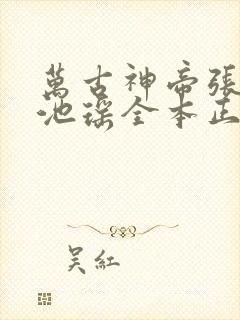 萬古神帝張
池瑤全本正
吴紅